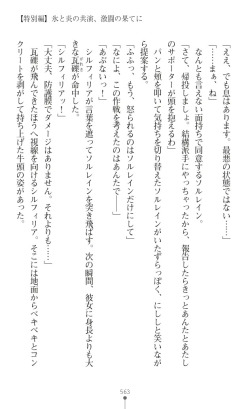 【特別編】氷と炎の共演、激闘の果てに
「ええ、でも息はあります。最悪の状態ではない……」
「……まぁ、ね」
なんとも言えない面持ちで同意するソルレイン。
「さて、帰投しましょ。結構派手にやっちゃったから、報告したらきっとあんたとあたし
のサポーターが頭を抱えるわ」
パンと頬を叩いて気持ちを切り替えたいたずらっぽく、にししと笑いなが
ら提案する。
「ふふっ、もう。怒られるのはソルレインだけにして」
「えー、この作戦を考えたのはあんたで――」
「あぶないっ！」
シルフィリアが言葉を遮ってソルレインを突き飛ばす。次の瞬間、彼女に身長よりも大
きな瓦礫が命中した。
「シルフィリアッ！」
「大丈夫、防護膜でダメージはありません。それよりも……」
瓦礫が飛んできたほうへ視線を向けるシルフィリア。そこには地面からベキベキとコン
クリートを剥がして持ち上げた牛頭の姿があった。
563